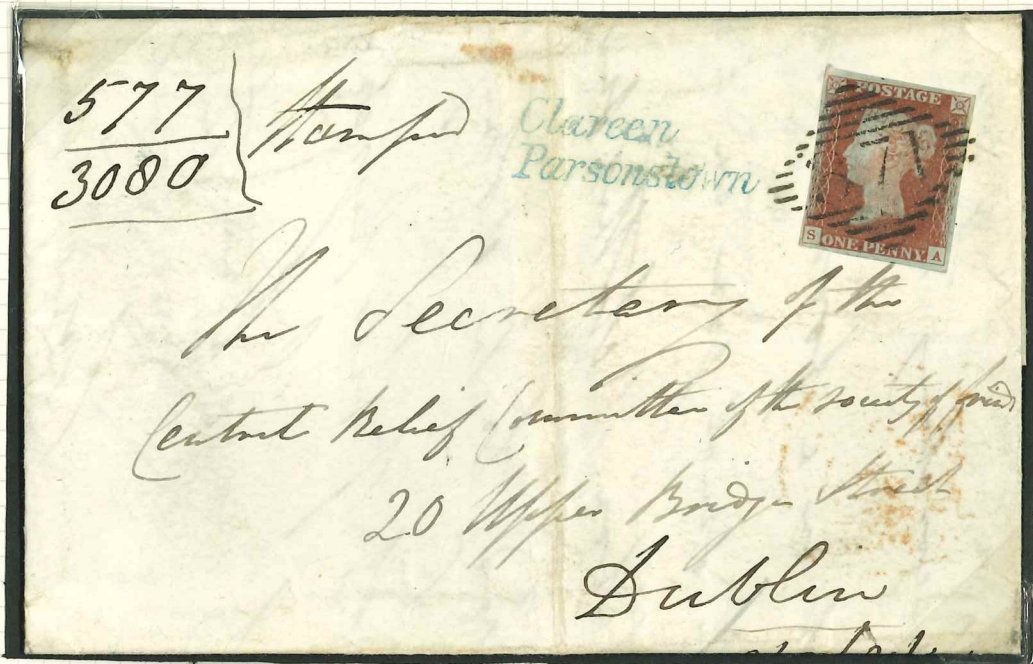 577
3080
Stamped
Clareen
Parsonstown
POSTAGE
S ONE PENNY A
The Secretary of the
Central Relief Committee of the society of friends
20 Upper Bridge Street
Dublin